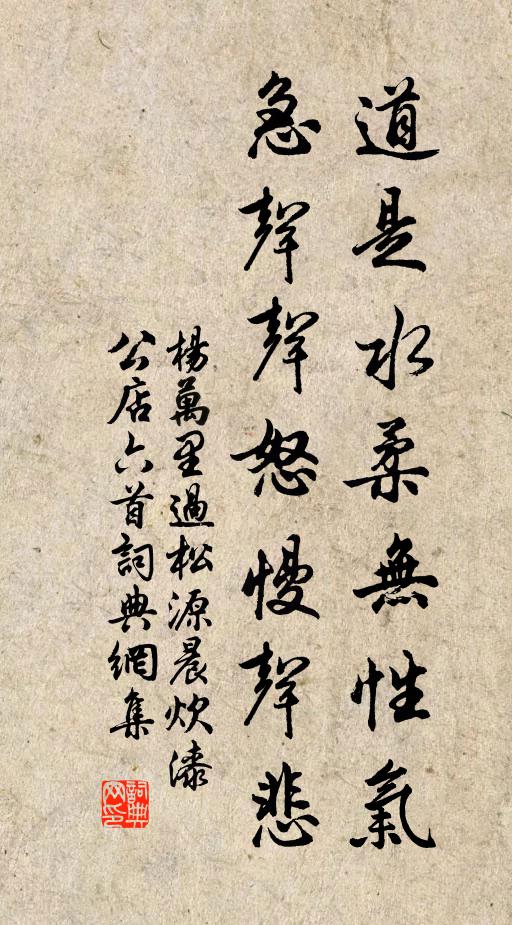 道是水柔無性氣
急聲聲怒慢聲悲
楊萬里過松源晨炊漆
公店六首詞典網集
詞典网印